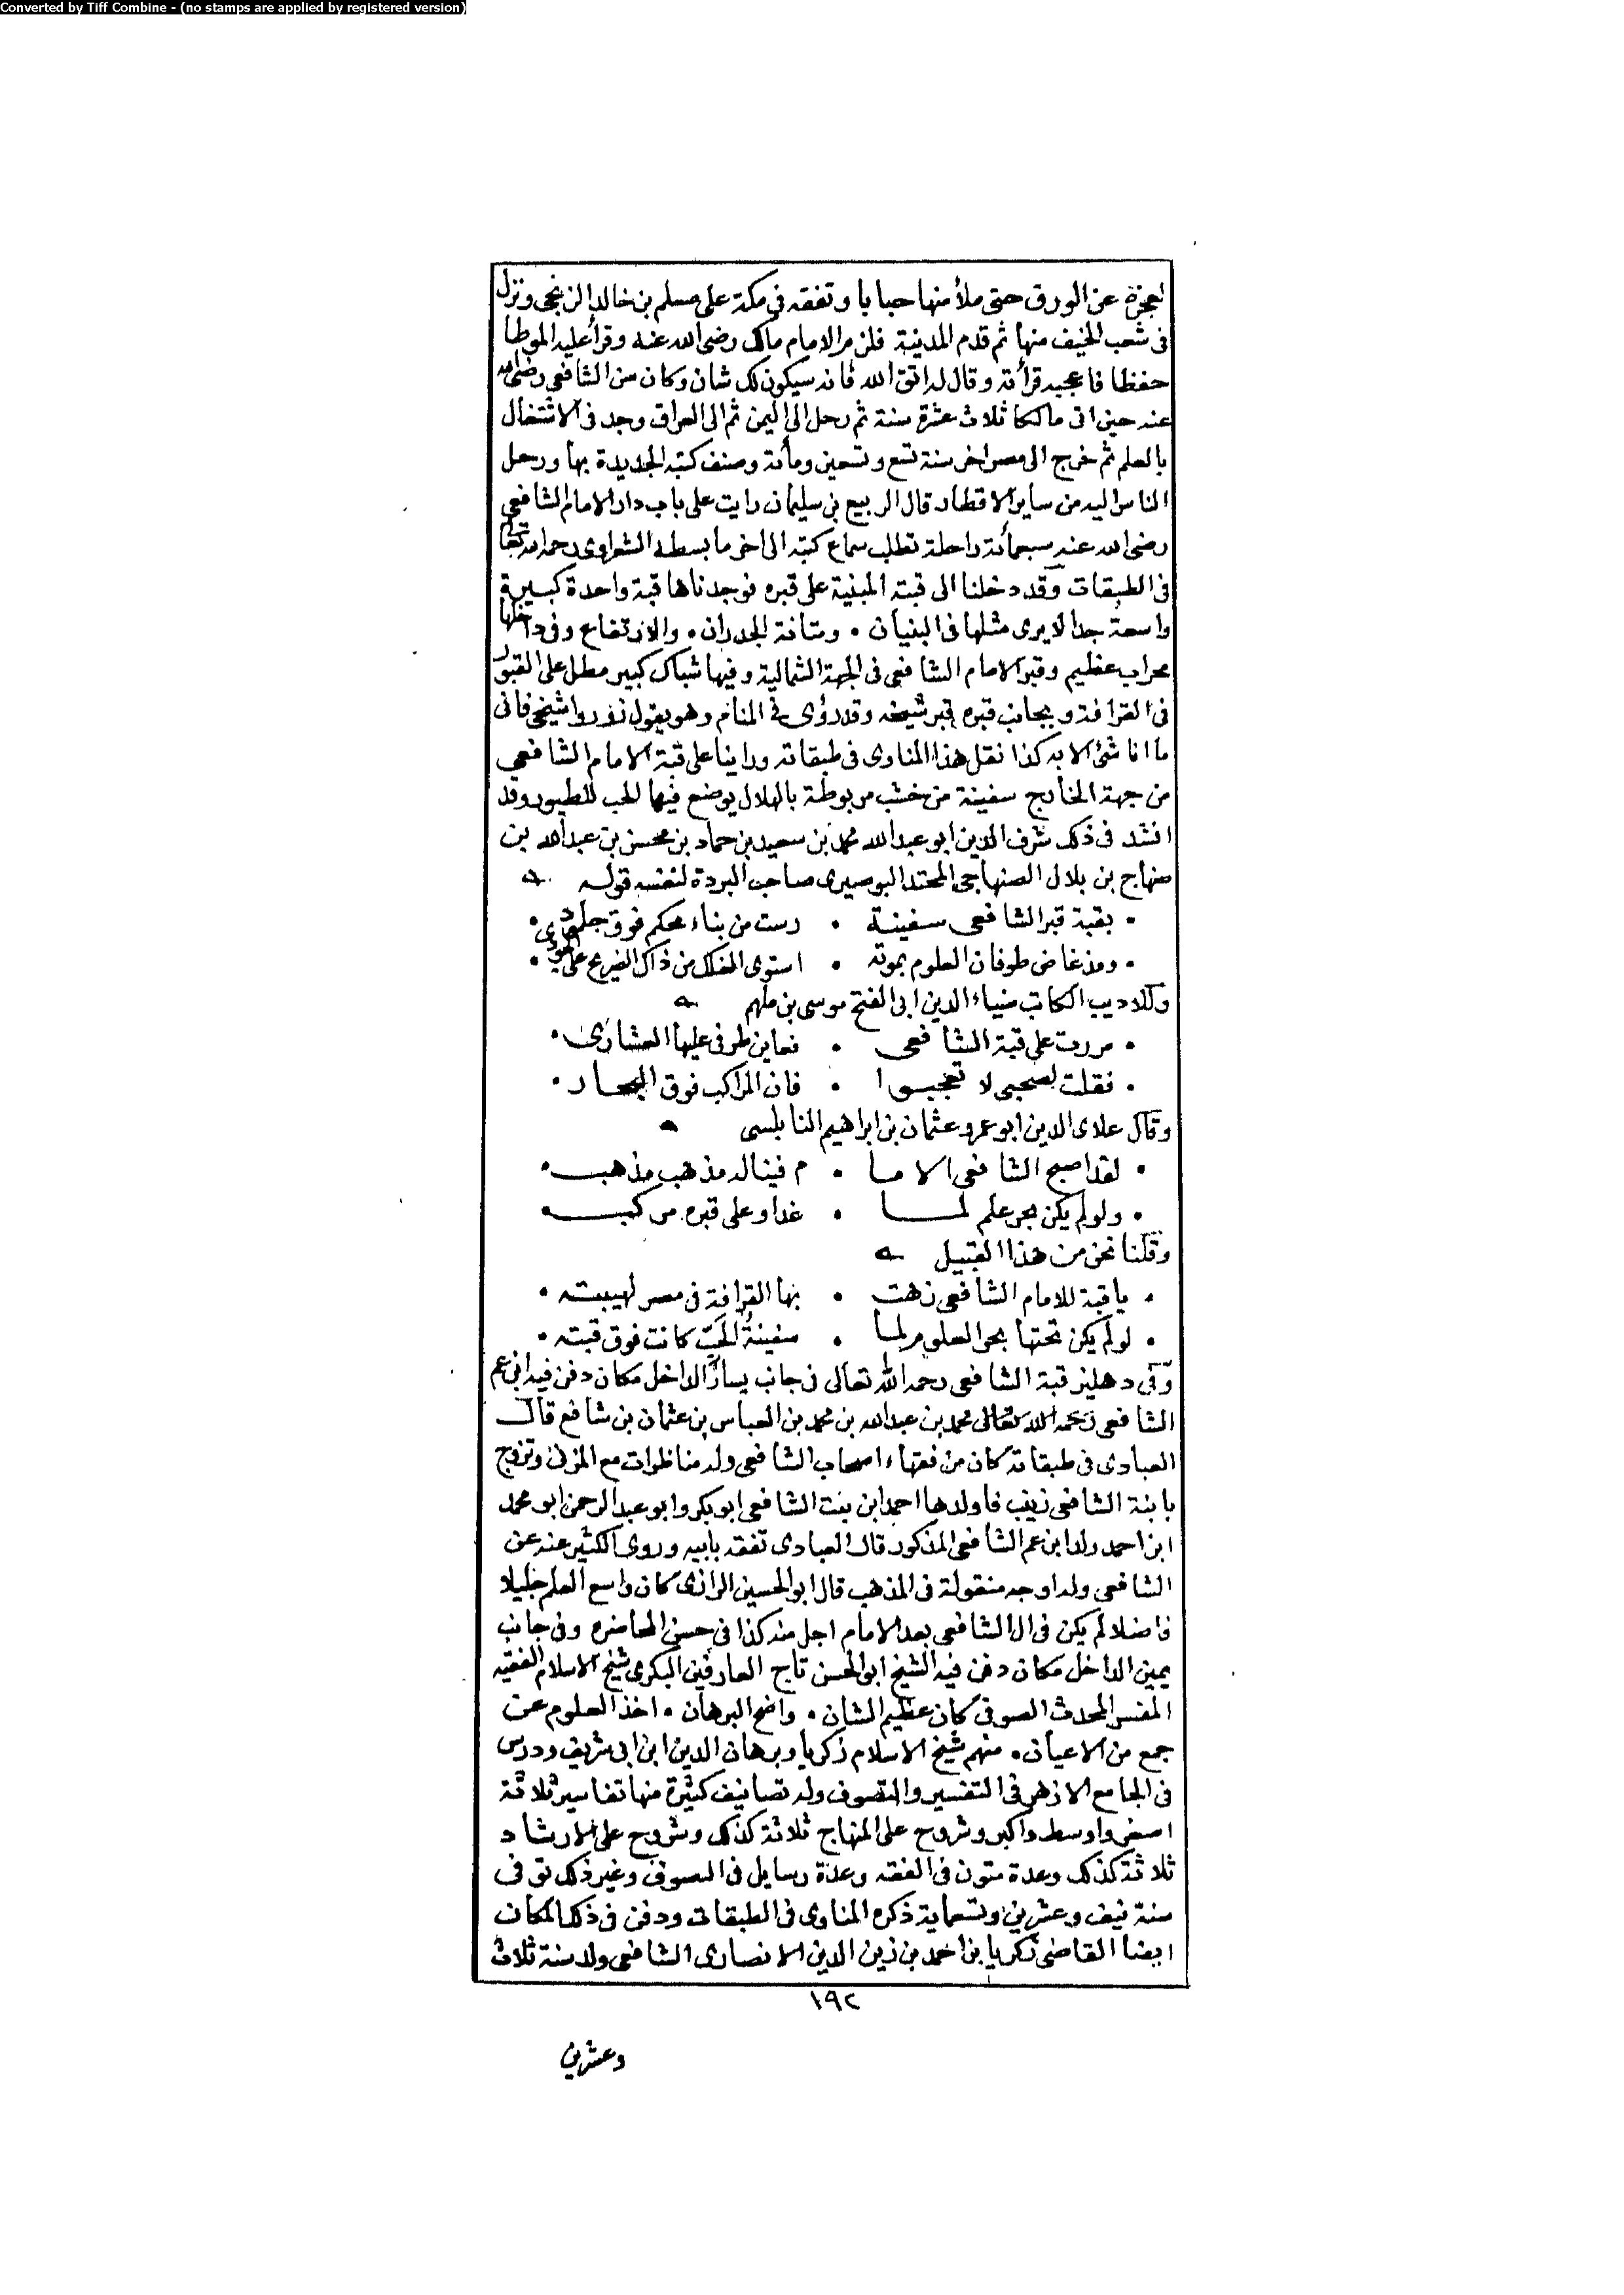 Converted by Tiff Combine - (no stamps are applied by registered version)
لعجزه عن الورق حتى ملأ منها حبابا وتفقه في مكة على مسلم بن خالد الزنجى ونزل
فى شعب الخيف منها ثم قدم المدينة فلزم الامام مالك رضى الله عنه وقرأ عليه الموطا
حفظا فاعجبه قرأته وقال له اتق الله فانه سيكون لك شان وكان سن الشافعي رضى الله
عنه حين اتى مالكا ثلاث عشرة سنة ثم رحل الى اليمن ثم الى العراق وجد فى الاشتغال
بالعلم ثم خرج الى مصر اخر سنة تسع وتسعين ومأئة وصنف كتبه الجديدة بها ورحل
الناس اليه من ساير الاقطار قال الربيع بن سليمان رايت على باب دار الامام الشافعي
رضى الله عنه سبعمائة راحلة تطلب سماع كتبه الى اخر ما بسطه الشعراوى رحمه الله تعالى
فى الطبقات وقد دخلنا الى قبته المبنية على قبره فوجدناها قبة واحدة كبيرة
واسعة جدا لا يرى مثلها فى البنيان ٠ ومتانة الجدران ٠ والارتفاع وفى داخلها
محراب عظيم وقبر الامام الشافعي فى الجهة الشمالية وفيها شباك كبير مطل على القبور
فى القرافة وبجانب قبره قبر شيخه وقد رؤى في المنام وهو يقول زوروا شيخى فانى
ما انا شئ الا به كذا نقل هذا المناوى فى طبقاته وراينا على قبة الامام الشافعي
من جهة الخارج سفينة من خشب مربوطة بالهلال يوضع فيها الحب للطيور وقد
انشد فى ذلك شرف الدين ابو عبد الله محمد بن سعيد بن حماد بن محسن بن عبد الله بن
صنهاج بن بلال الصنهاجى المحتد البوصيرى صاحب البردة لنفسه قوله
٠ بقبة قبر الشافعى سفينة ٠ رست من بناء محكم فوق جلمود ٠
٠ ومذ غاض طوفان العلوم بموته ٠ استوى الفلك من ذاك الضريح على الجودى ٠
وللاديب الكاتب ضياء الدين ابى الفتح موسى بن ملهم
٠ مررت على قبة الشافعى ٠ فعاين طرفى عليها العشارى ٠
٠ فقلت لصحبى لا تعجبوا ٠ فان المراكب فوق البحار ٠
وقال علاى الدين ابو عمرو عثمان بن ابراهيم النابلسى
٠ لقد اصبح الشافعى الاما ٠ م فينا له مذهب مذهب ٠
٠ ولو لم يكن بحر علم لما ٠ غدا وعلى قبره مركب ٠
وقلنا نحن من هذا القبيل
٠ يا قبة للامام الشافعى زهت ٠ بها القرافة فى مصر لهيبته ٠
٠ لو لم يكن تحتها بحر العلوم لما ٠ سفينة الحب كانت فوق قبته ٠
وفى دهليز قبة الشافعى رحمه الله تعالى فى جانب يسار الداخل مكان دفن فيه ابن عم
الشافعى رحمه الله تعالى محمد بن عبد الله بن محمد بن العباس بن عثمان بن شافع قال
العبادى فى طبقاته كان من فقهاء اصحاب الشافعى وله مناظرات مع المزنى وتزوج
بابنة الشافعى زينب فاولدها احمد ابن بنت الشافعى ابو بكر وابو عبد الرحمن ابو محمد
ابن احمد ولد ابن عم الشافعى المذكور قال العبادى تفقه بابيه وروى الكثير عنه عن
الشافعى وله اوجه منقولة فى المذهب قال ابو الحسين الرازى كان واسع العلم جليلا
فاضلا لم يكن فى ال الشافعى بعد الامام اجل منه كذا فى حسن المحاضره وفى جانب
يمين الداخل مكان دفن فيه الشيخ ابو الحسن تاج العارفين البكرى شيخ الاسلام الفقيه
المفسر المحدث الصوفى كان عظيم الشان ٠ واضح البرهان ٠ اخذ العلوم عن
جمع من الاعيان ٠ منهم شيخ الاسلام زكريا وبرهان الدين ابن ابى شريف ودرس
فى الجامع الازهر فى التفسير والتصوف وله تصانيف كثيرة منها تفاسير ثلاثة
اصغر واوسط واكبر وشروح على المنهاج ثلاثة كذلك وشروح على الارشاد
ثلاثة كذلك وعدة متون فى الفقه وعدة رسايل فى التصوف وغير ذلك توفى
سنة نيف وعشرين وتسعماية ذكره المناوى فى الطبقات ودفن فى ذلك المكان
ايضا القاضى زكريا بن احمد بن زين الدين الانصارى الشافعى ولد سنة ثلاث
١٩٢
وعشرين